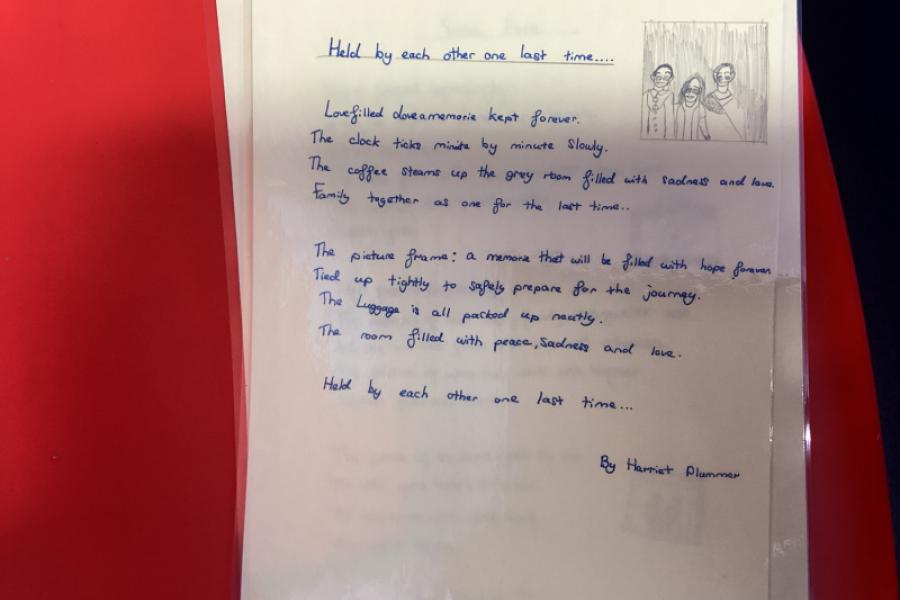 Held by each other one last time....
Lovefilled doveamemorie kept forever.
The clock ticks minute by minute slowly.
The coffee steams up the grey room filled with sadness and love.
Family together as one for the last time..
The picture frame: a memorie that will be filled with hope forever.
Tied up tightly to safely prepare for the journey.
The Luggage is all packed up neatly.
The room filled with peace, Sadness and love.
Held by each other one last time...
By Harriet Plummer